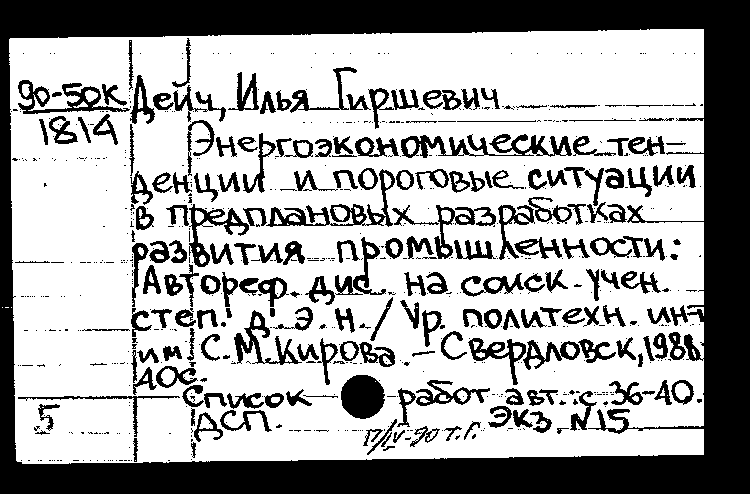 90-50К Дейч, Илья Гиршевич
1814
Энергоэкономические тен-
денции и пороговые ситуации
в предплановых разработках
развития промышленности:
Автореф. дис. на соиск. учен.
степ. д. э. н. / Ур. политехн. ин-т
им. С.М.Кирова. - Свердловск, 1988
40с.
Список работ авт.: с. 36-40.
5 ДСП. Экз. N15
П/IV-90 т.г.